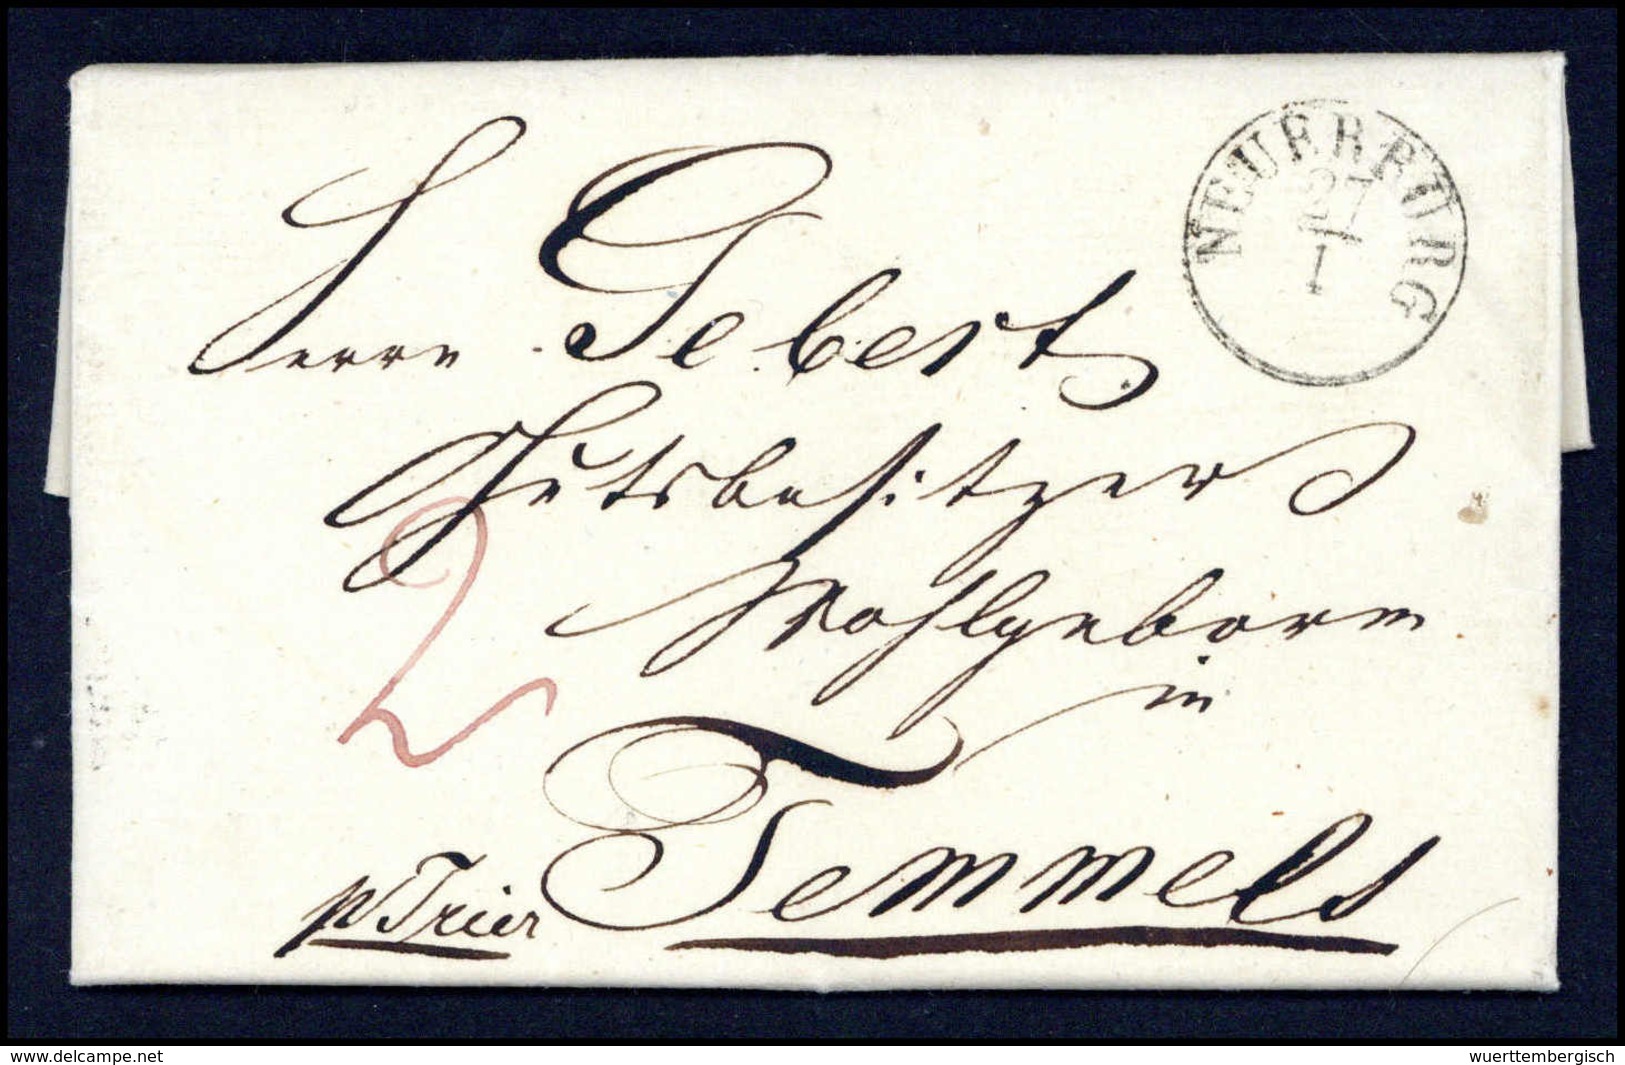 NEUERBURG
27
1
Herrn Gebert
Gutsbesitzer
Wohlgeboren
in
2
Temmels
p Trier
www.delcampe.net
wuerttembergisch